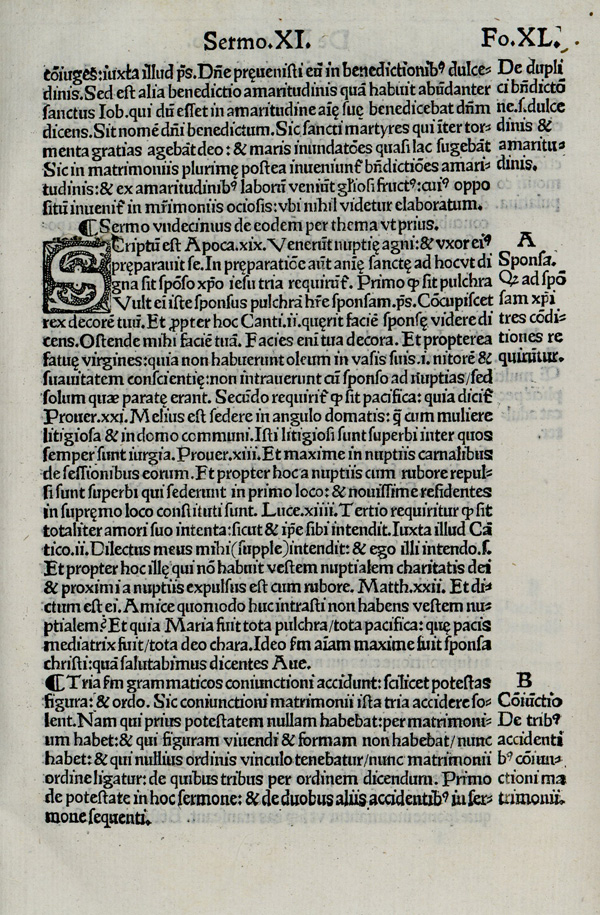 Sermo.XI. Fo.XL.
cõiuges:iuxta illud p̃s. Dñe pręuenisti eũ in benedictionibꝰ dulce-
dinis. Sed est alia benedictio amaritudinis quã habuit abũdanter
sanctus Iob.qui dũ esset in amaritudine aĩę suę benedicebat dñm
dicens. Sit nomẽ dñi benedictum. Sic sancti martyres qui ĩter tor-
menta gratias agebãt deo: & maris inundatões quasi lac sugebãt
Sic in matrimoniis plurimę postea inueniunt̃ bñdictiões amari-
tudinis: & ex amaritudinibꝰ laborũ veniũt gl̃iosi fructꝰ: cuiꝰ oppo
situ inuenit̃ in mr̃imoniis ociosis: vbi nihil videtur elaboratum.
De dupli
ci bñdictõ
ne.s.dulce
dinis &
amaritu-
dinis.
¶ Sermo vndecimus de eodem per thema vt prius.
SCriptũ est Apoca.xix. Venerũt nuptię agni: & vxor eiꝰ
pręparauit se. In pręparatiõe aũt anię sanctę ad hoc vt di
gna sit põso xp̃o iesu tria requirunt̃. Primo ꝙ sit pulchra
Vult eĩ iste sponsus pulchrã hr̃e sponsam.p̃s. Cõcupiscet
rex decorẽ tuũ. Et ꝓpter hoc Canti.ii.quęrit faciẽ sponsę videre di
cens. Ostende mihi faciẽ tuã. Facies eni tua decora. Et propterea
fatuę virgines: quia non habuerunt oleum in vasis suis.i. nitorẽ &
suauitatem conscientię: non intrauerunt cũ sponso ad nuptias/sed
solum quæ paratę erant. Secũdo requirit̃ ꝙ sit pacifica: quia dicit̃
Prouer.xxi. Melius est sedere in angulo domatis: q̃ cum muliere
litigiosa & in domo communi. Isti litigiosi sunt superbi inter quos
semper sunt iurgia. Prouer.xiii. Et maxime in nuptiis carnalibus
de sessionibus eorum. Et propter hoc a nuptiis cum rubore repul-
si sunt superbi qui sederunt in primo loco: & nouissime residentes
in supręmo loco constituti sunt. Luce.xiiii. Tertio requiritur ꝙ sit
totaliter amori suo intenta: sicut & ip̃e sibi intendit. Iuxta illud Cã
tico.ii. Dilectus meus mihi(supple)intendit: & ego illi intendo.s.
Et propter hoc illę qui nõ habuit vestem nuptialem charitatis dei
& proximi a nuptiis expulsus est cum rubore. Matth.xxii. Et di-
ctum est ei. Amice quomodo huc intrasti non habens vestem nu-
ptialem? Et quia Maria fuit tota pulchra/tota pacifica: quę pacis
mediatrix fuit/tota deo chara. Ideo fm aĩam maxime fuit sponsa
christi: quã salutabimus dicentes Aue.
A
Sponsa.
Qꝫ ad spõ
sam xp̃i
tres cõdi-
tiones re
quirũtur.
¶ Tria fm grammaticos coniunctioni accidunt: scilicet potestas
figura: & ordo. Sic coniunctioni matrimonii ista tria accidere so-
lent. Nam qui prius potestatem nullam habebat: per matrimoni-
um habet: & qui figuram viuendi & formam non habebat/nunc
habet: & qui nullius ordinis vinculo tenebatur/nunc matrimonii
ordine ligatur: de quibus tribus per ordinem dicendum. Primo
de potestate in hoc sermone: & de duobus aliis accidentibꝰ in ser-
mone sequenti.
B
Cõiũctio
De tribꝰ
accidenti
bꝰ cõiun-
ctioni ma
trimonii.